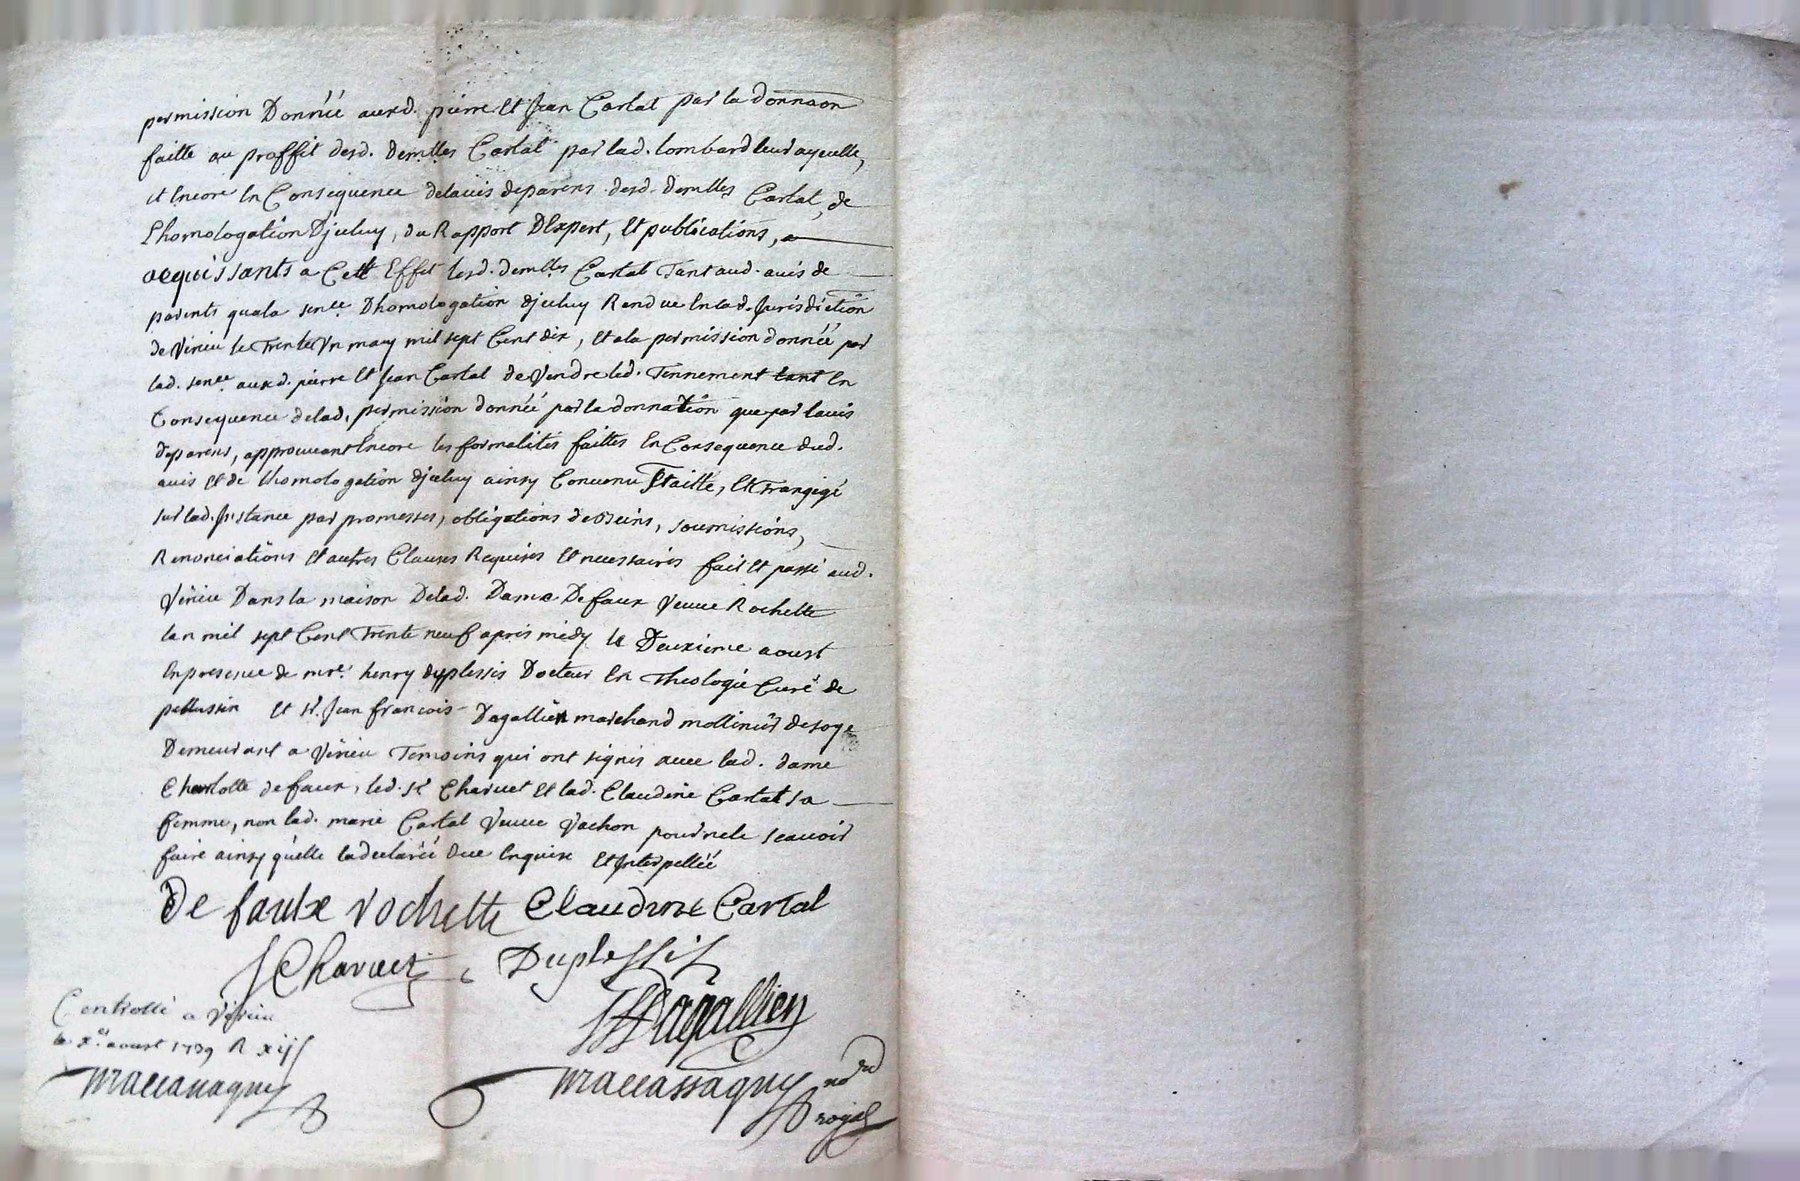 permission Donnéé auxd. pierre Et Jean Cartal par la donnaon
faitte au proffit desd. demlles Cartal par lad. lombard leur ayeulle,
et Encore En Consequence delauis deparens desd. demlles Cartal, de
L'homologation Djceluy, du Rapport DExpert, Et publications, a
acquissants a Cett Effet lesd. demlles Cartal Tant aud. auis de
parents quala sence Dhomologation djceluy Rendue En lad. Jurisdiction
de Virieu le Trente Un may mil sept Cent dix, Et a la permission donnéé par
lad. sence auxd. pierre Et Jean Cartal de Vendre led. Tennement tant En
Consequence delad. permission donnéé par la donnation que par lauis
deparens, approuuant Encore les formalités faittes En Consequence dud.
auis Et de lhomologation djceluy ainsy Conuenu Traitté, Et Transigé
sur lad. Jnstance par promesses, obligations de biens, soumissions,
Renonciations Et autres Clauses Requises Et necessaires fait Et passé aud.
Virieu Dans la maison Delad. Dame Defaux Veuue Rochette
lan mil sept Cent Trente neuf apres midy le Deuxieme aoust
Enpresence de mre. henry duplessis Docteur En Theologie Curé de
pellussin Et sr. Jean francois Dagallier marchand mollineur de soye
Demeurant a Virieu Temoins qui ont signés auec lad. dame
Charlotte defaux, led. sr Charuet Et lad. Claudine Cartal sa
femme, non lad. marie Cartal Veuue Vachon pour ne le scauoir
faire ainsy quelle ladeclaréé Due Enquise Et Jnterpelléé
De faulx rochette Claudine Cartal
J Charuet Duplessis
Dagallier
Controllé a Virieu
le xe. aoust 1739 R xijs
maccassagny
maccassagny nore
royal